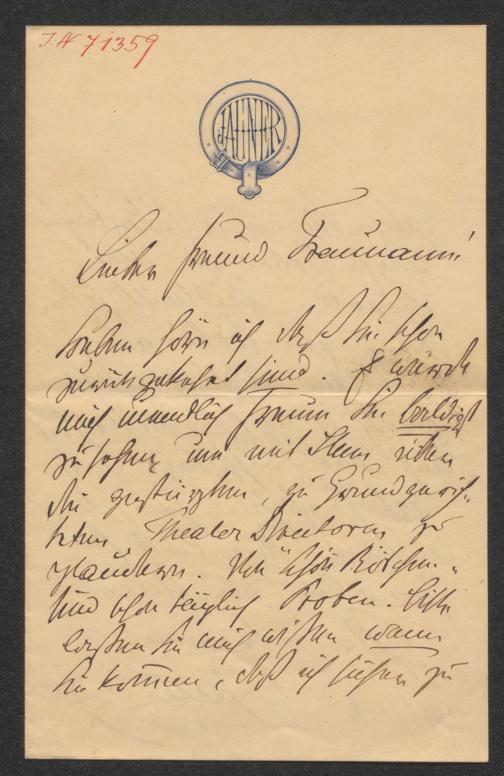 J.N 71359
JAUNER
Lieber Freund Traumann!
Soeben höre ich daß Sie schon
zurückgekehrt sind. Es würde
mich unendlich freuen Sie baldigst
zu sehen, um mit Ihnen über
die gestürzten, zu Grund gerich-
teten Theater Directoren zu
plaudern. Von "schön Röschen"
sind schon täglich Proben. Bitte
lassen Sie mich wissen wann
Sie kommen, daß ich sicher zu